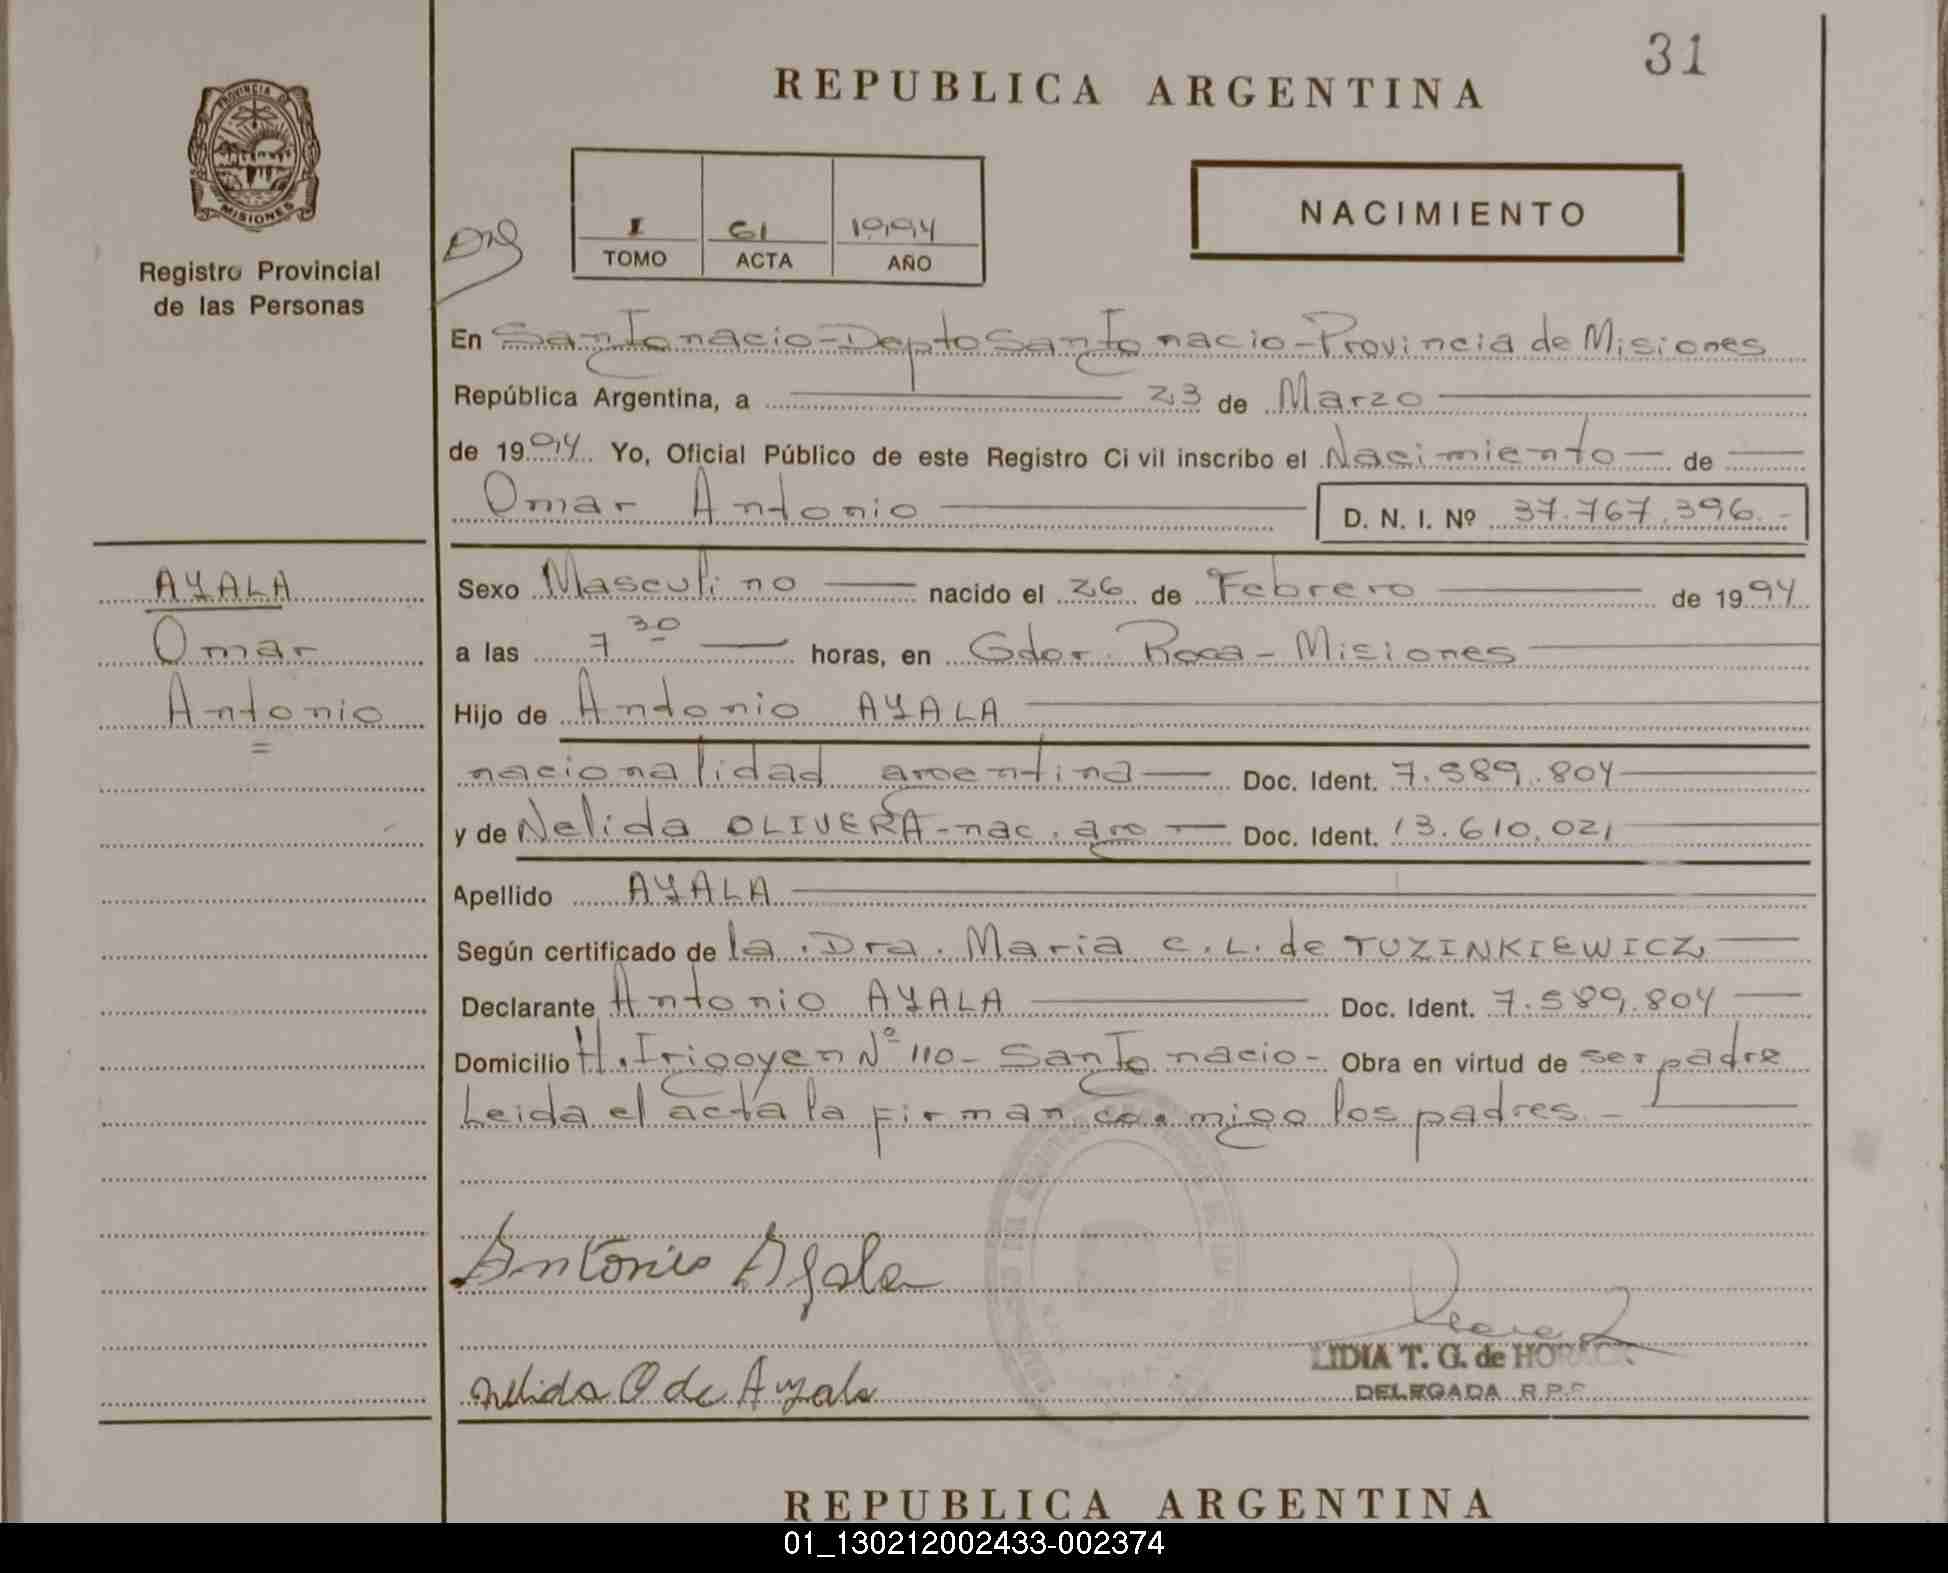 31
REPUBLICA ARGENTINA
PROVINCIA DE
MISIONES
Registro Provincial
de las Personas
I 61 1994
TOMO ACTA AÑO
NACIMIENTO
En San Ignacio - Depto San Ignacio - Provincia de Misiones
República Argentina, a 23 de Marzo
de 1994 Yo, Oficial Público de este Registro Civil inscribo el Nacimiento de
Omar Antonio D. N. I. Nº 37.767.396.-
AYALA
Omar
Antonio
Sexo Masculino nacido el 26 de Febrero de 1994
a las 7 30 horas, en Gdor. Roca - Misiones
Hijo de Antonio AYALA
nacionalidad argentina Doc. Ident. 7.589.804
y de Nelida OLIVERA - nac. arg Doc. Ident. 13.610.021
Apellido AYALA
Según certificado de la Dra. Maria C. L. de TUZINKIEWICZ
Declarante Antonio AYALA Doc. Ident. 7.589.804
Domicilio H. Irigoyen Nº 110 - San Ignacio - Obra en virtud de ser padre
Leida el acta la firman conmigo los padres. -
Antonio Ayala
LIDIA T. G. de
DELEGADA R.P.P.
Nelida O de Ayala
REPUBLICA ARGENTINA
01_130212002433-002374